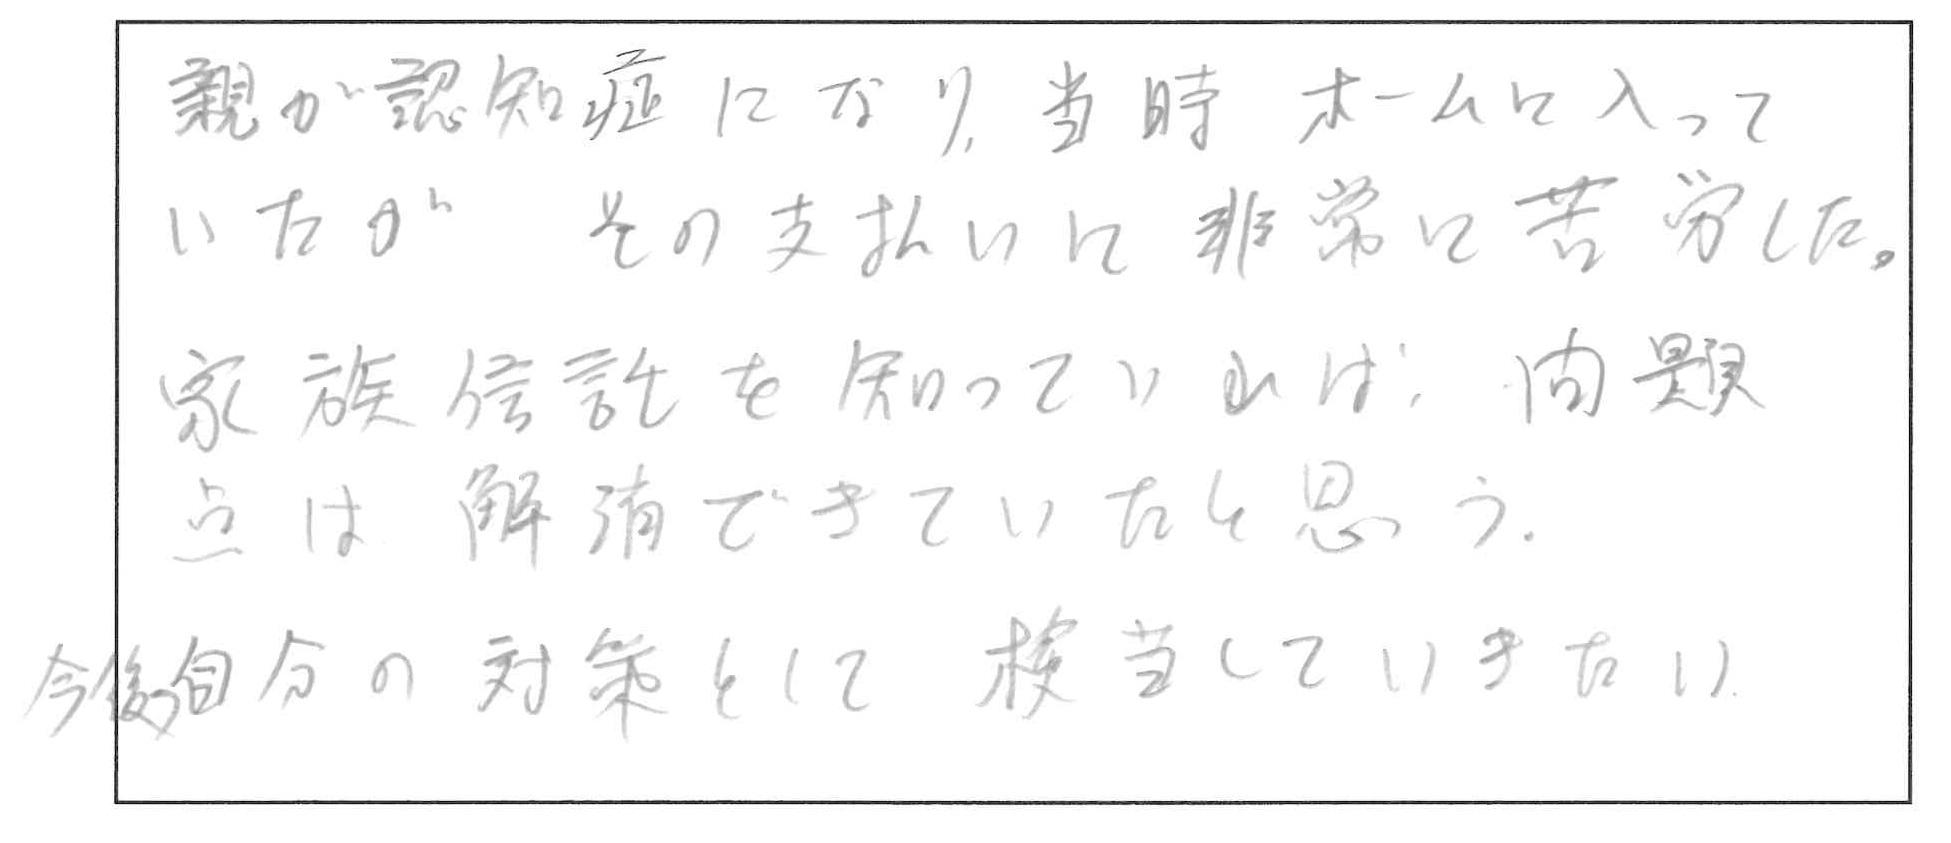 親が認知症になり、当時 ホームに入って
いたが その支払いに非常に苦労した。
家族信託を知っていれば、問題
点は解消できていたと思う.
今後自分の対策として 検当していきたい